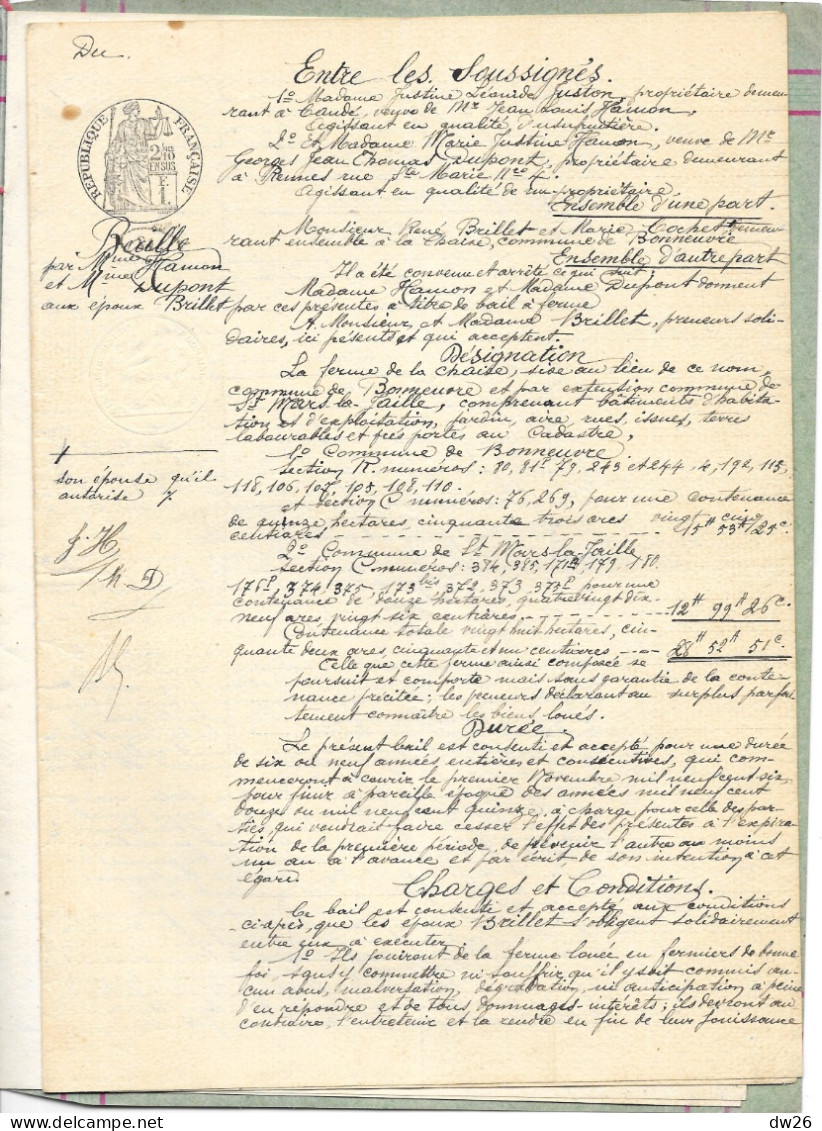 Du
Entre les Soussignés.
1º Madame Justine Léonide Juston, propriétaire demeu-
rant à Candé, veuve de Mr Jean Louis Hamon,
Agissant en qualité d'usufruitière.
2º Et Madame Marie Justine Hamon, veuve de Mr
Georges Jean Thomas Dupont, propriétaire demeurant
à Rennes rue Ste Marie Nº 4.
Agissant en qualité de nu-propriétaire
Ensemble d'une part.
REPUBLIQUE FRANÇAISE
2/10
EN SUS
1
Monsieur René Brillet et Marie Cochet demeu-
rant ensemble à la Chaise, commune de Bonneuvre
Ensemble d'autre part
Bail
par Mme Hamon
et Mme Dupont
aux époux Brillet
Il a été convenu et arrêté ce qui suit:
Madame Hamon et Madame Dupont donnent
par ces présentes à titre de bail à ferme
A Monsieur et Madame Brillet, preneurs soli-
daires, ici présents et qui acceptent.
Désignation
La ferme de la Chaise, sise au lieu de ce nom,
commune de Bonneuvre et par extension commune de
St Mars-la-Jaille, comprenant bâtiments d'habita-
tion et d'exploitation, jardin, aire rues, issues, terres
labourables et prés portés au Cadastre,
1º Commune de Bonneuvre
section R. numéros: 80, 81p 79, 243 et 244, 4, 192, 115,
118, 106, 107, 105, 108, 110.
son épouse qu'il
autorise
J. H
M. D
et section C numéros: 76, 269, pour une contenance
de quinze hectares, cinquante trois ares vingt cinq
centiares 15H 53A 25c.
2º Commune de St Mars-la-Jaille
section C numéros: 384, 385, 171 179, 180
176p, 374, 375, 173bis 372, 373 375p pour une
contenance de douze hectares, quatre vingt dix
neuf ares, vingt six centiares, 12H 99A 26c.
Contenance totale vingt huit hectares, cin-
quante deux ares, cinquante et un centiares 28H 52A 51c.
Telle que cette ferme ainsi composée se
poursuit et comporte mais sans garantie de la conte-
nance précitée; les preneurs déclarant au surplus parfai-
tement connaître les biens loués.
Durée
Le présent bail est consenti et accepté pour une durée
de six ou neuf années entières et consécutives, qui com-
menceront à courir le premier Novembre mil neuf cent six,
pour finir à pareille époque des années mil neuf cent
douze ou mil neuf cent quinze, à charge pour celle des par-
ties, qui voudrait faire cesser l'effet des présentes à l'expira-
tion de la première période, de prévenir l'autre au moins
un an à l'avance et par écrit de son intention à cet
égard.
Charges et Conditions.
Ce bail est consenti et accepté aux conditions
ci-après, que les époux Brillet s'obligent solidairement
entre eux à exécuter.
1º Ils jouiront de la ferme louée en fermiers de bonne
foi sans y commettre ni souffrir qu'il y soit commis au-
cun abus, malversation, dégradation, ni anticipation à peine
d'en répondre et de tous dommages-intérêts; ils devront au
contraire, l'entretenir et la rendre en fin de leur jouissance
dw26